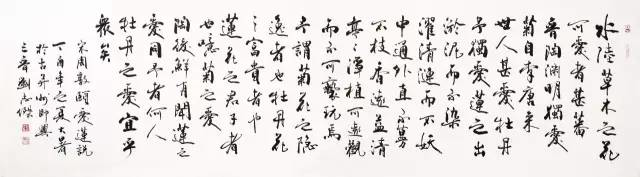 水陸草木之花
可愛者甚蕃
晋陶淵明獨愛
菊自李唐来
世人甚愛牡丹
予獨愛蓮之出
淤泥而不染
濯清漣而不妖
中通外直不蔓
不枝香遠益清
亭亭淨植可遠觀
而不可褻玩焉
予謂菊花之隐
逸者也牡丹花
之富貴者也
蓮花之君子者
也噫菊之愛
陶後鮮有聞蓮之
愛同予者何人
牡丹之愛宜乎
衆矣
宋周敦頤愛蓮説
丁酉年之夏大暑
於古